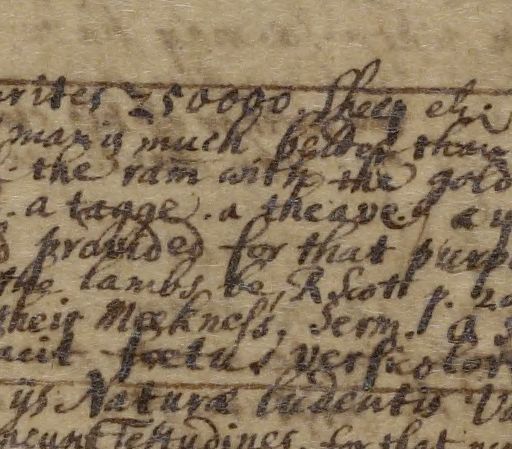 writes 250000. sheep
man is much better than
the ram with the gold
. a tagge. a theave.
provided for that purp
the lambs be, R Scott p. 20
their Meekness, Serm.
foetus versicolor
ijs Naturæ ludentis
Testudines. for that